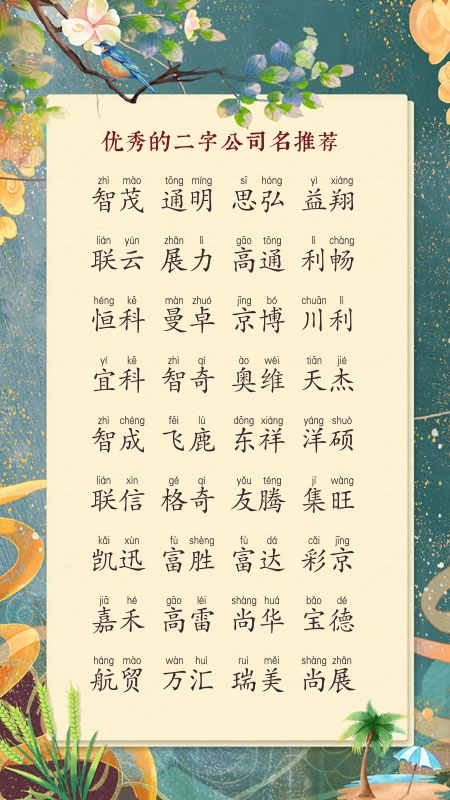 优秀的二字公司名推荐
zhì mào tōng míng sī hóng yì xiáng
智茂 通明 思弘 益翔
lián yún zhǎn lì gāo tōng lì chàng
联云 展力 高通 利畅
héng kē màn zhuó jīng bó chuān lì
恒科 曼卓 京博 川利
yí kē zhì qí ào wéi tiān jié
宜科 智奇 奥维 天杰
zhì chéng fēi lù dōng xiáng yáng shuò
智成 飞鹿 东祥 洋硕
lián xìn gé qí yǒu téng jí wàng
联信 格奇 友腾 集旺
kǎi xùn fù shèng fù dá cǎi jīng
凯迅 富胜 富达 彩京
jiā hé gāo léi shàng huá bǎo dé
嘉禾 高雷 尚华 宝德
háng mào wàn huì ruì měi shàng zhǎn
航贸 万汇 瑞美 尚展